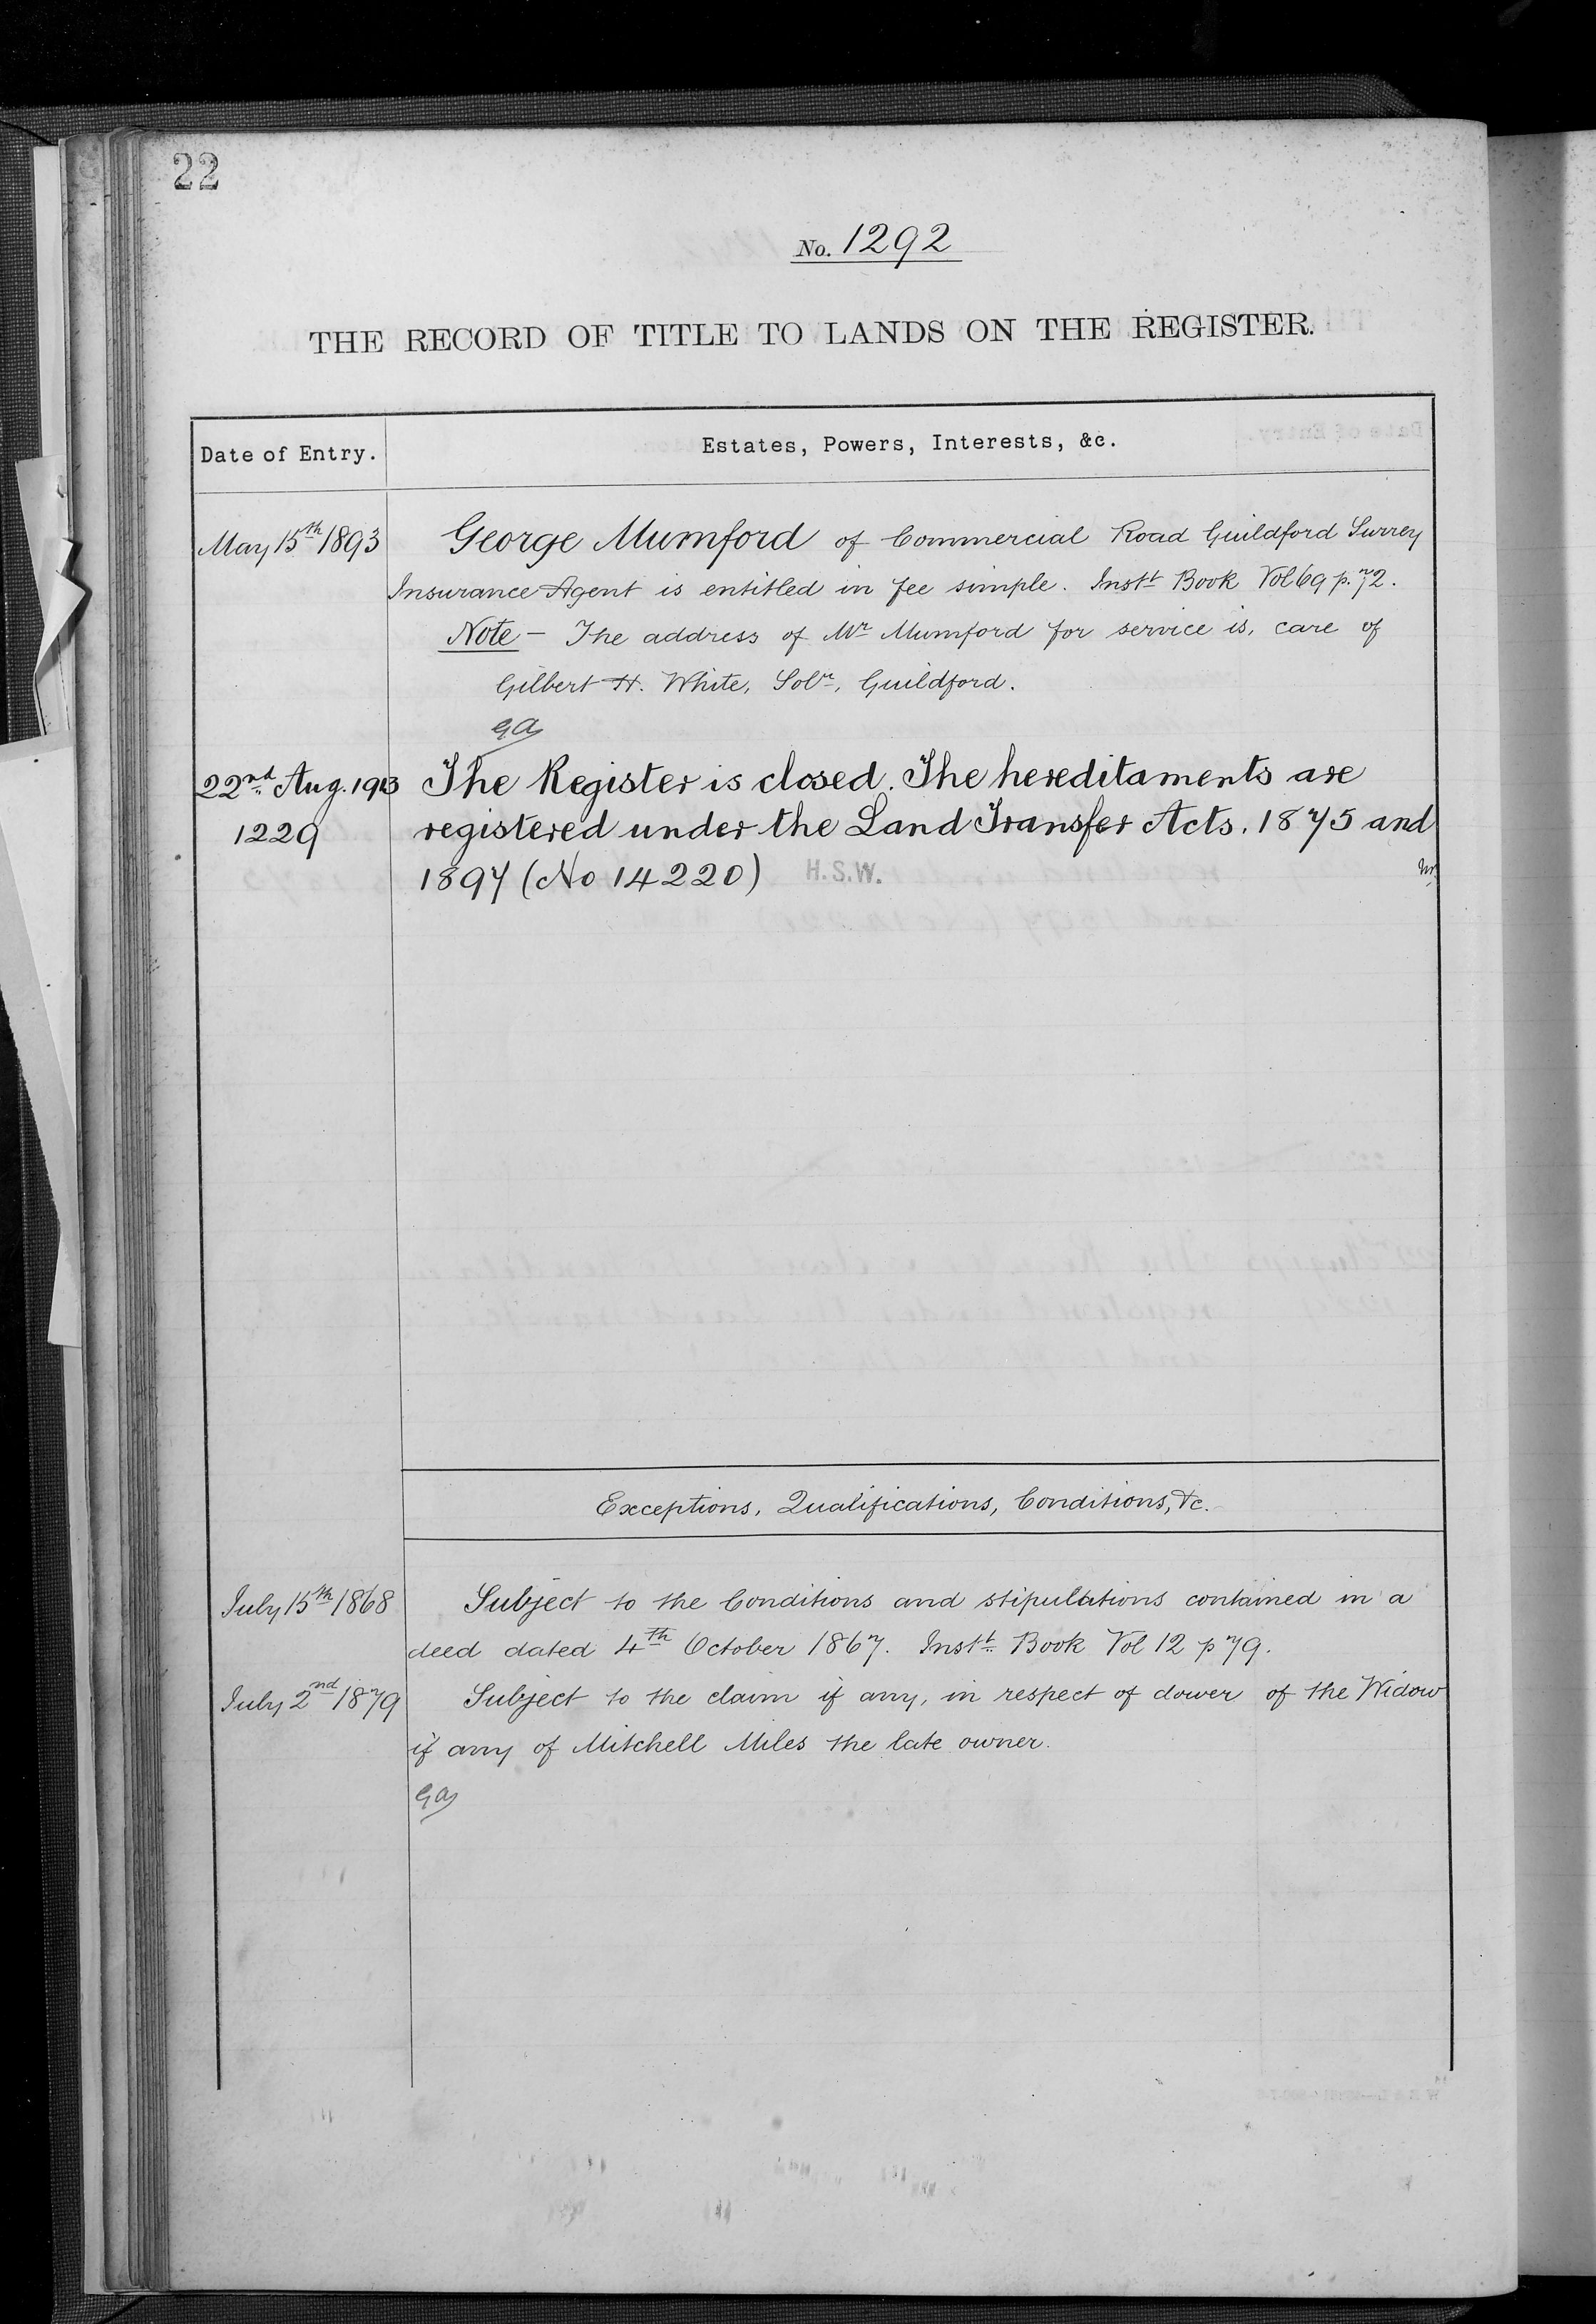 22
No. 1292
THE RECORD OF TITLE TO LANDS ON THE REGISTER.
Date of Entry.
Estates, Powers, Interests, &c.
May 15th 1893
George Mumford of Commercial Road Guildford Surrey
Insurance Agent is entitled in fee simple. Instt Book Vol 69 p. 72.
Note - The address of Mr Mumford for service is, care of
Gilbert H. White, Solr, Guildford.
GA
22nd Aug. 1913
The Register is closed. The hereditaments are
1229
registered under the Land Transfer Acts. 1875 and
1897 (No 14220) H.S.W.
Exceptions, Qualifications, Conditions, &c.
July 15th 1868
Subject to the Conditions and stipulations contained in a
deed dated 4th October 1867. Instt Book Vol 12 p 79.
July 2nd 1879
Subject to the claim if any, in respect of dower of the Widow
if any of Mitchell Miles the late owner.
GA